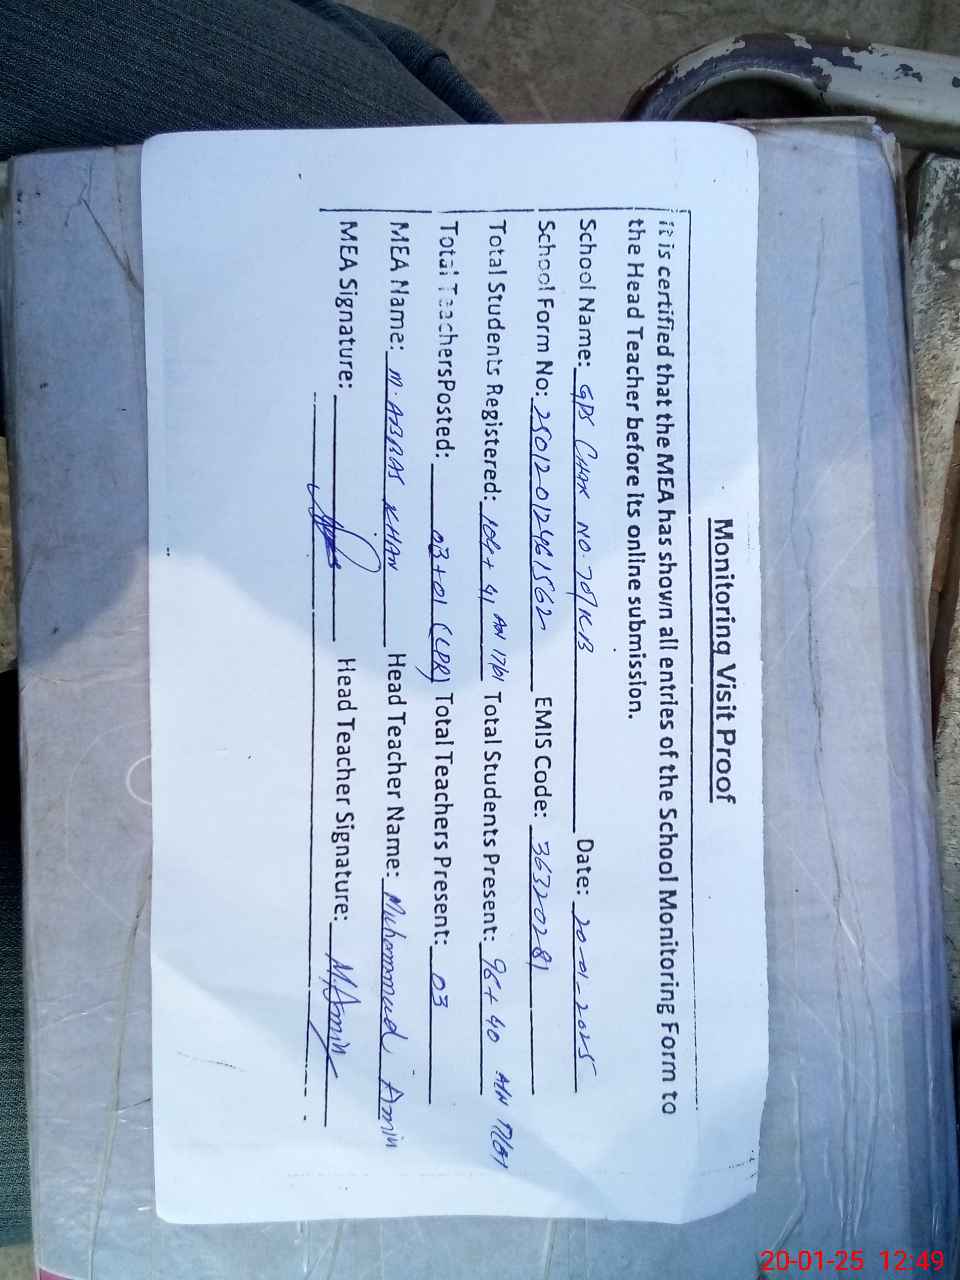 Monitoring Visit Proof
It is certified that the MEA has shown all entries of the School Monitoring Form to
the Head Teacher before its online submission.
School Name: GPS CHAK NO. 70/KB Date: 20-01-2025
School Form No: 25012012461562 EMIS Code: 36320281
Total Students Registered: 104+41 Total Students Present: 96+40
Total Teachers Posted: 03+01 (LPR) Total Teachers Present: 03
MEA Name: M. ABBAS KHAN Head Teacher Name: Muhammad Amin
MEA Signature: Head Teacher Signature: M.Amin
20-01-25 12:49